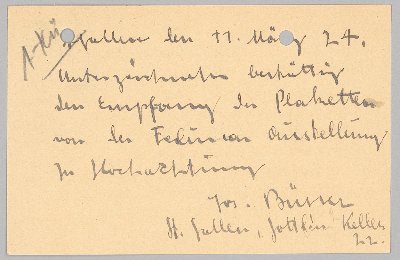 St. Gallen den 11. März 24.
Unterzeichneter bestättig
den Empfang der Plaketten
von der Februar Ausstellung
Hochachtung
Jos. Büsser
St. Gallen, Keller
22.